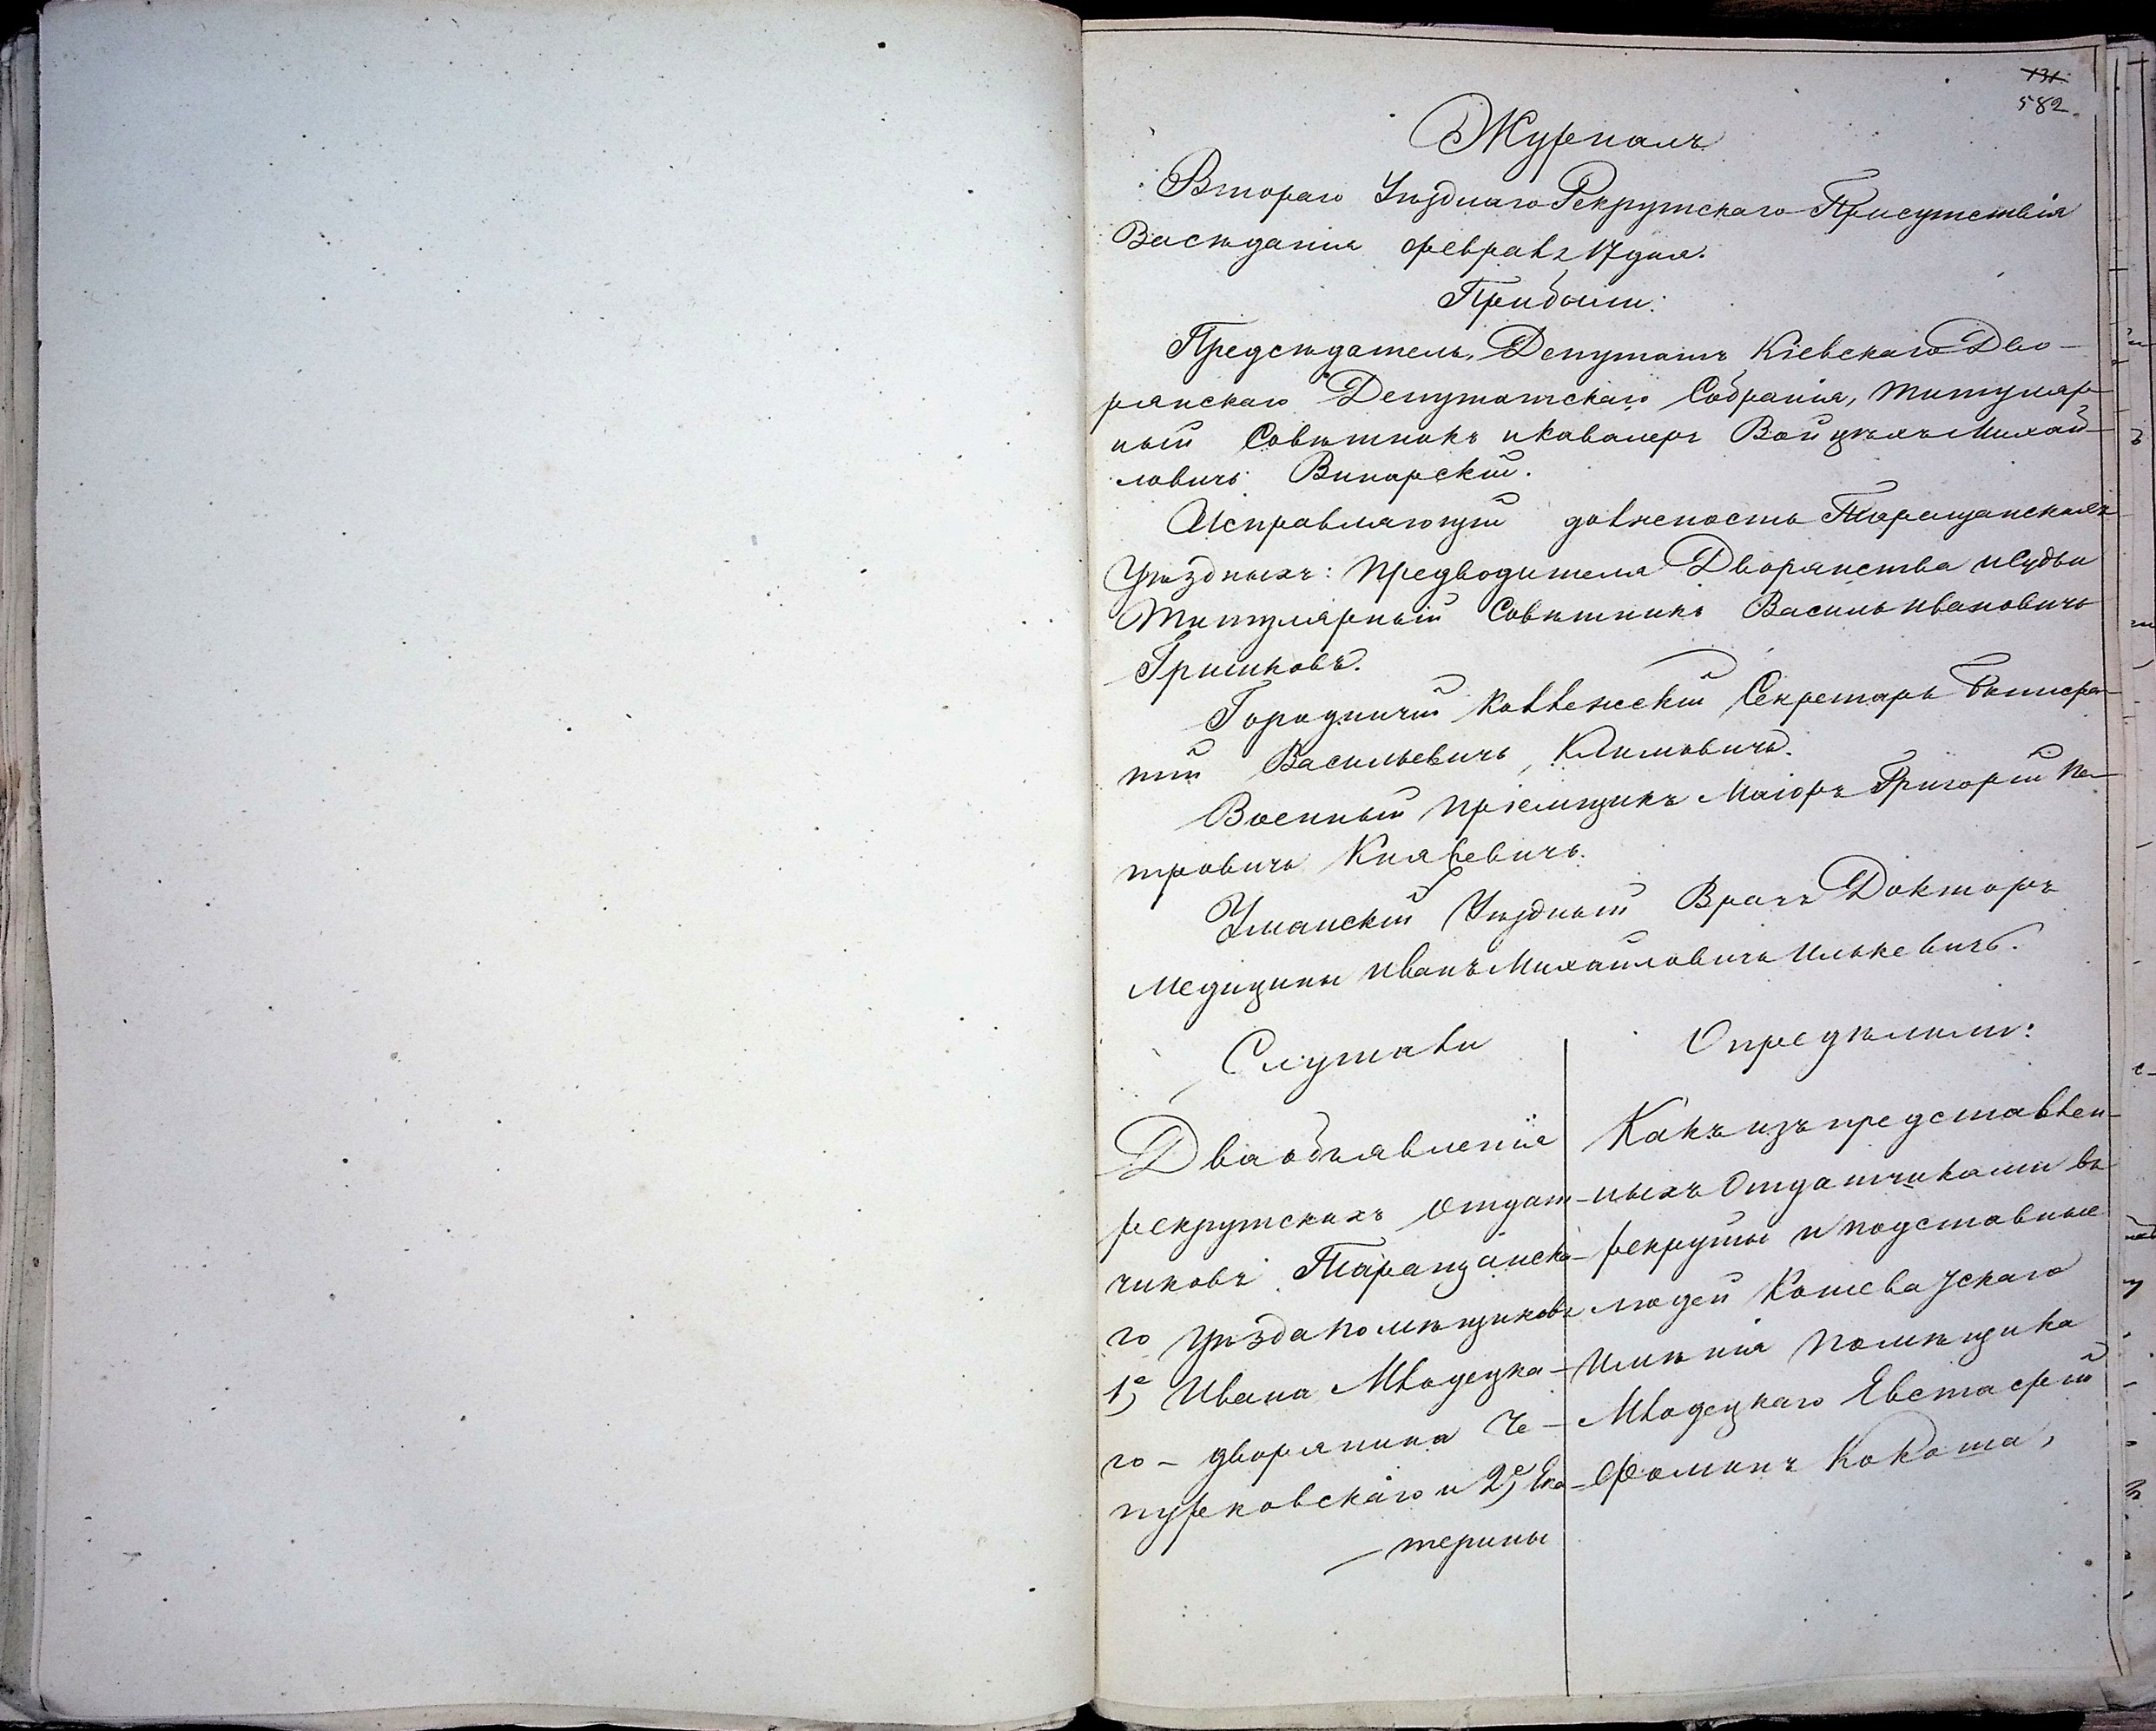 131.
582.
Журналъ
Втораго Уѣзднаго Рекрутскаго Присутствія
Засѣданія февраля 17 дня.
Прибыли:
Предсѣдатель, Депутатъ Кіевскаго Дво-
рянскаго Депутатскаго Собранія, титуляр-
ный Совѣтникъ и кавалеръ Войцѣхъ Михай-
ловичъ Винарскій.
Исправляющій должность Таращанскихъ
Уѣздныхъ: Предводителя Дворянства и Судьи
Титулярный Совѣтникъ Василь Ивановичъ
Гришковъ.
Городничій Коллежскій Секретарь
тій Васильевичъ Климовичъ.
Военный пріемщикъ Маіоръ Григорій Пе-
тровичъ Князевичъ.
Уманскій Уѣздный Врачъ Докторъ
Медицины Иванъ Михайловичъ Илькевичъ.
Слушали
Два объявленія
рекрутскихъ отдат-
чиковъ Таращанска-
го Уѣзда помѣщиковъ
1е) Ивана Младецка-
го – дворянина Че-
пурковскаго и 2е) Ека-
терины
Опредѣлили:
Какъ изъ представлен-
ныхъ Отдатчиками въ
рекруты и подставные
людей Кошеватскаго
Имѣнія помѣщика
Младецкаго Евстафій
Фоминъ Кокота,